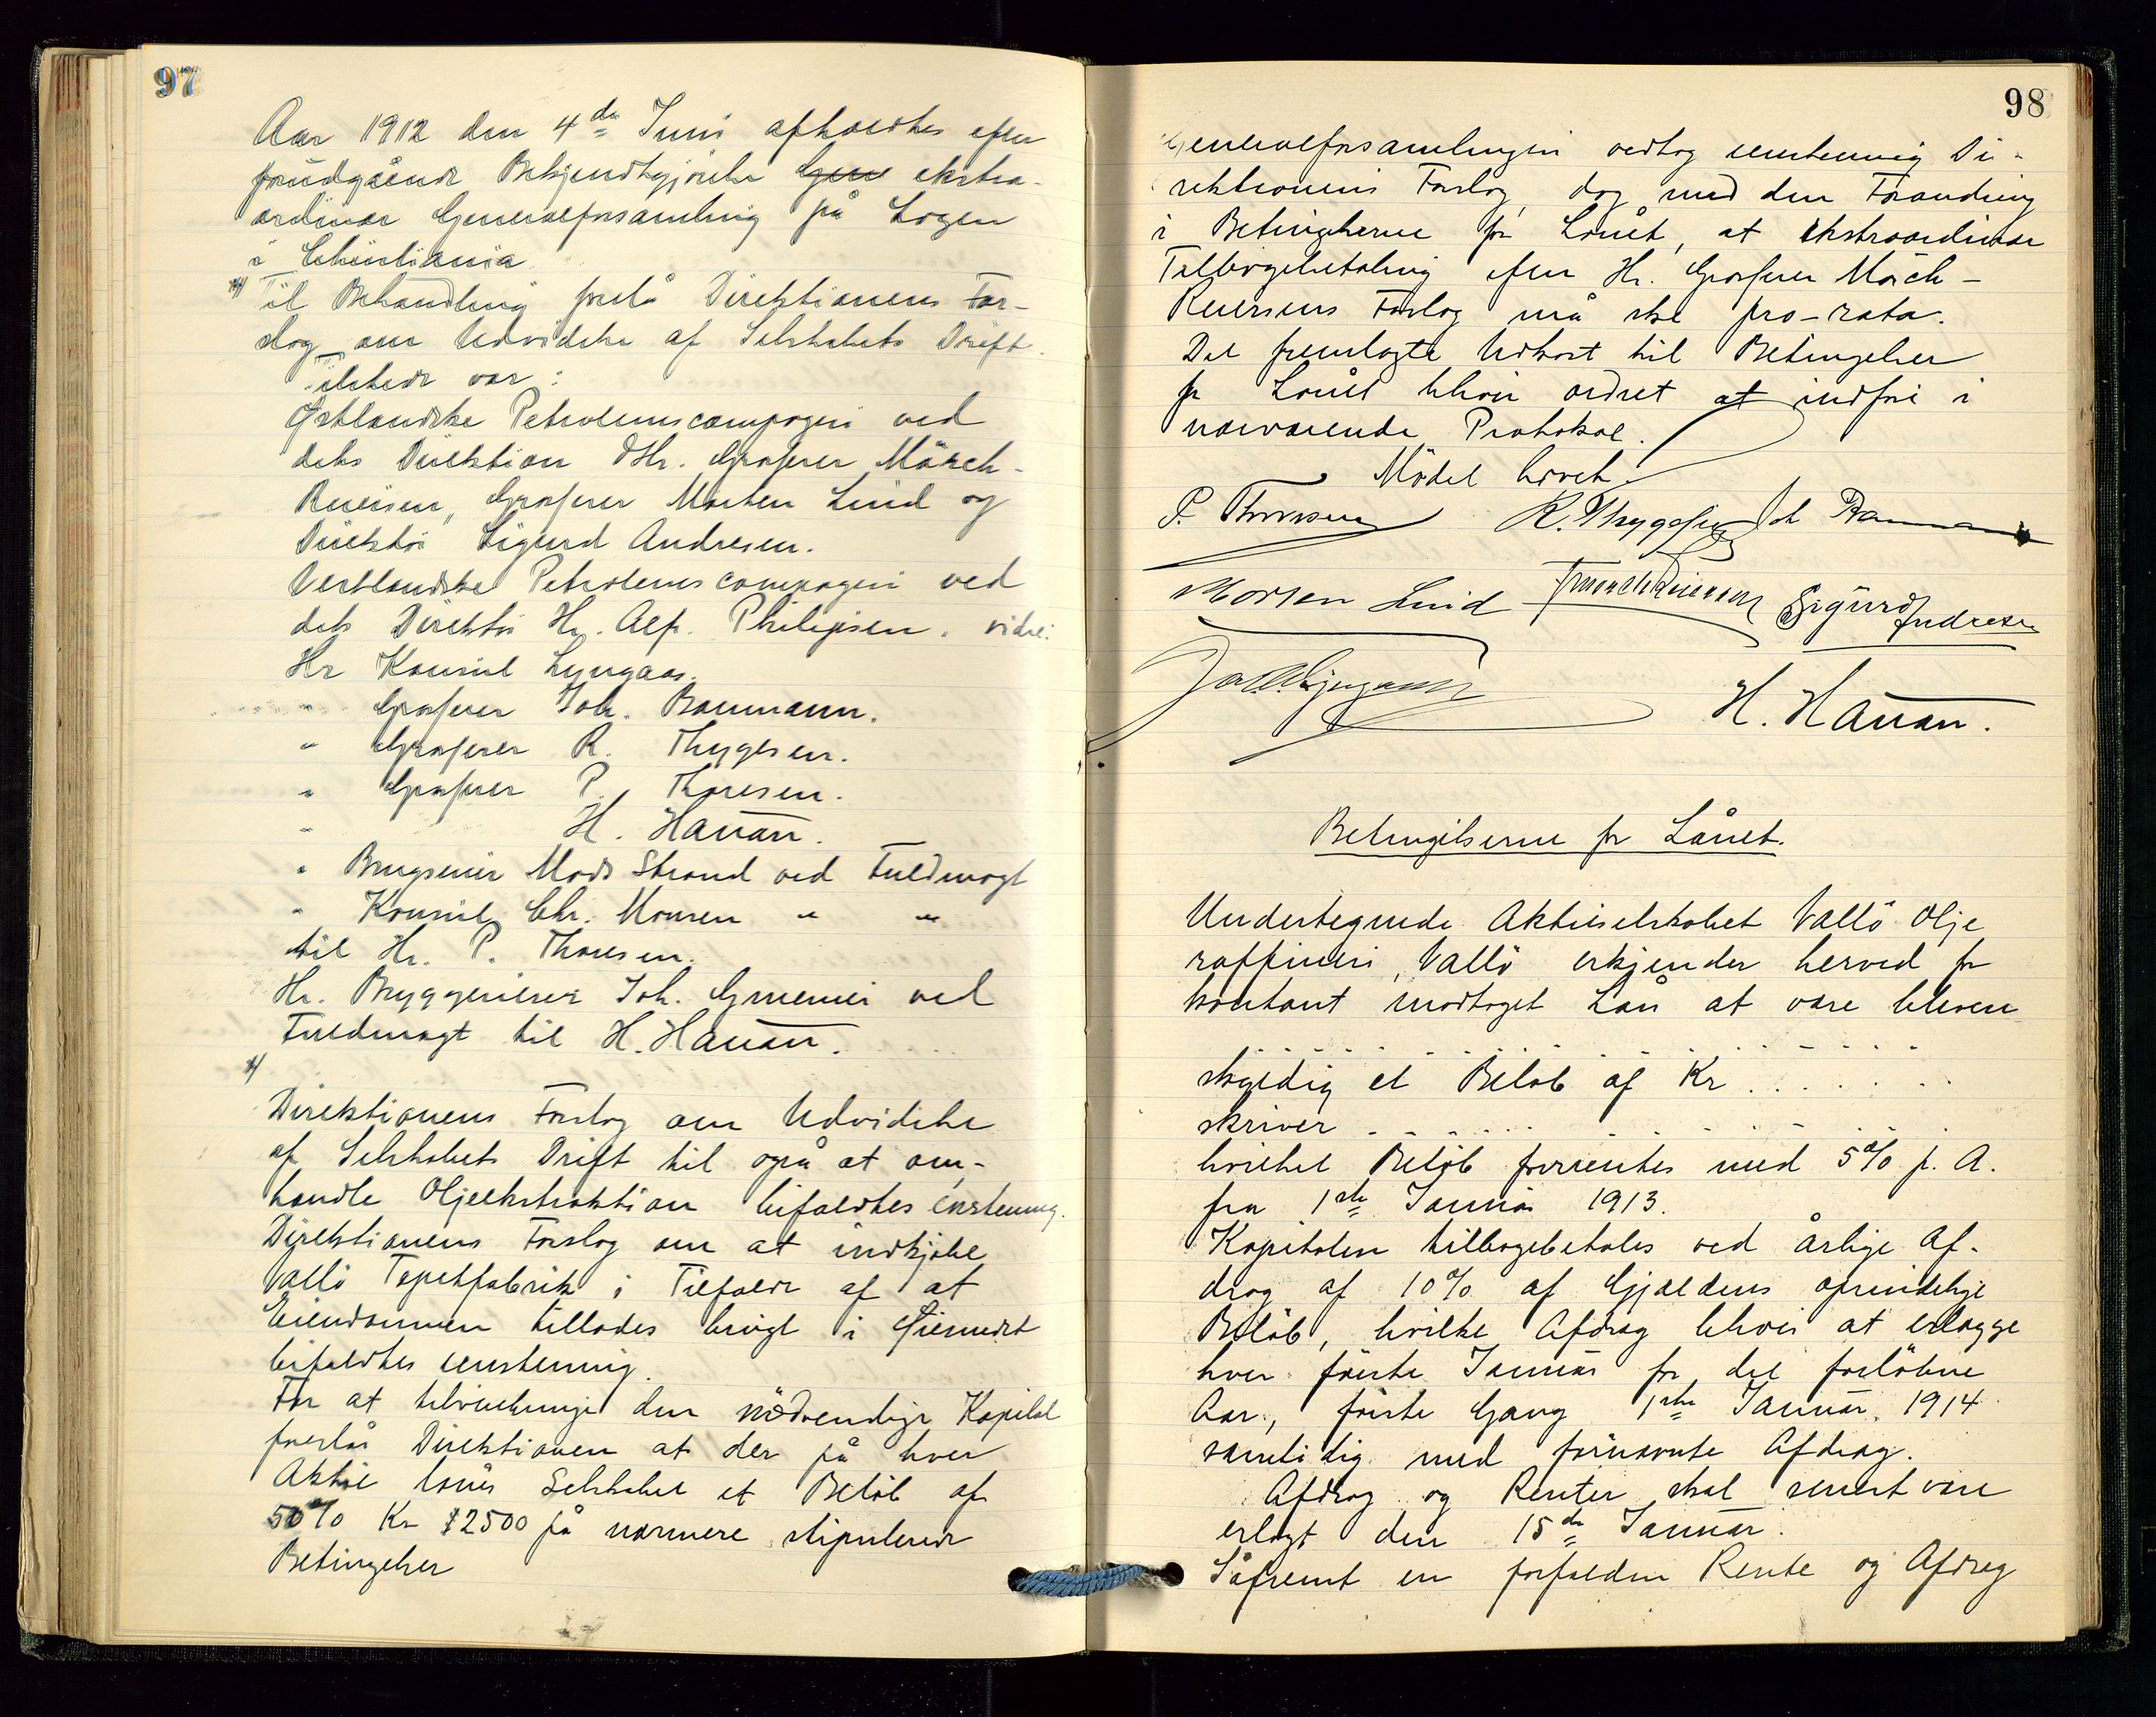 97
Aar 1912 den 4de Juni afholdtes efter
forudgående Bekjendtgjörelse Gene ekstra-
ordinær Generalforsamling på Logen
i Christiania.
Til Behandling forelå Direktionens For-
slag om Udvidelse af Selskabets Drift.
Tilstede var:
Østlandske Petroleumscompagni ved
dets Direktion dHr. Grosserer Mörch-
Reiersen, Grosserer Morten Lind og
Direktör Sigurd Andresen.
Vestlandske Petroleumscompagni ved
dets Direktör Hr. Alf. Philipsen. videre:
Hr Konsul Lyngaas.
" Grosserer Joh. Baumann.
" Grosserer R. Thygesen.
" Grosserer P. Thoresen.
" H. Hauan.
" Brugseier Mads Strand ved Fuldmagt
" Konsul Chr. Monsen " "
til Hr. P. Thoresen.
Hr. Bryggerieier Joh. ved
Fuldmagt til H. Hauan.
Direktionens Forslag om Udvidelse
af Selskabets Drift til også at om-
handle Oljeekstraktion bifaldtes enstemmig.
Direktionens Forslag om at indkjöbe
Vallö Tapetfabrik i Tilfælde af at
Eiendommen tillades brugt i Öiemedet
bifaldtes enstemmig.
For at tilveiebringe den nödvendige Kapital
foreslår Direktionen at der på hver
Aktie lånes Selskabet et Belöb af
50% Kr 2500 på nærmere stipulerede
Betingelser
98
Generalforsamlingen vedtog enstemmig Di-
rektionens Forslag, dog med den Forandring
i Betingelserne for Lånet, at ekstraordinær
Tilbagebetaling efter Hr. Grosserer Mörch-
Reiersens Forslag må ske pro-rata.
Det fremlagte Udkast til Betingelser
for Lånet bliver ordret at indföre i
nærværende Protokol.
Mödet hævet.
P. Thoresen R. Thygesen Joh Baumann
Morten Lind F Mörch Reiersen Sigurd Andresen
Lyngaas
H. Hauan.
Betingelserne for Lånet.
Undertegnede Aktieselskabet Vallö Olje
raffineri, Vallö erkjender herved for
kontant modtaget Lån at være bleven
. . . . . . . . . . . .
skyldig et Belöb af Kr . . . . . . .
skriver . . . . . . . . . . . .
hvilket Belöb forrentes med 5% p. A.
fra 1ste Januar 1913.
Kapitalen tilbagebetales ved årlige Af-
drag af 10% af Gjældens oprindelige
Belöb, hvilke Afdrag bliver at erlægge
hver förste Januar for det forlöbne
Aar, förste Gang 1ste Januar 1914
samtidig med fornævnte Afdrag.
Afdrag og Renter skal senest være
erlagt den 15de Januar.
Såfremt en forfalden Rente og Afdrag